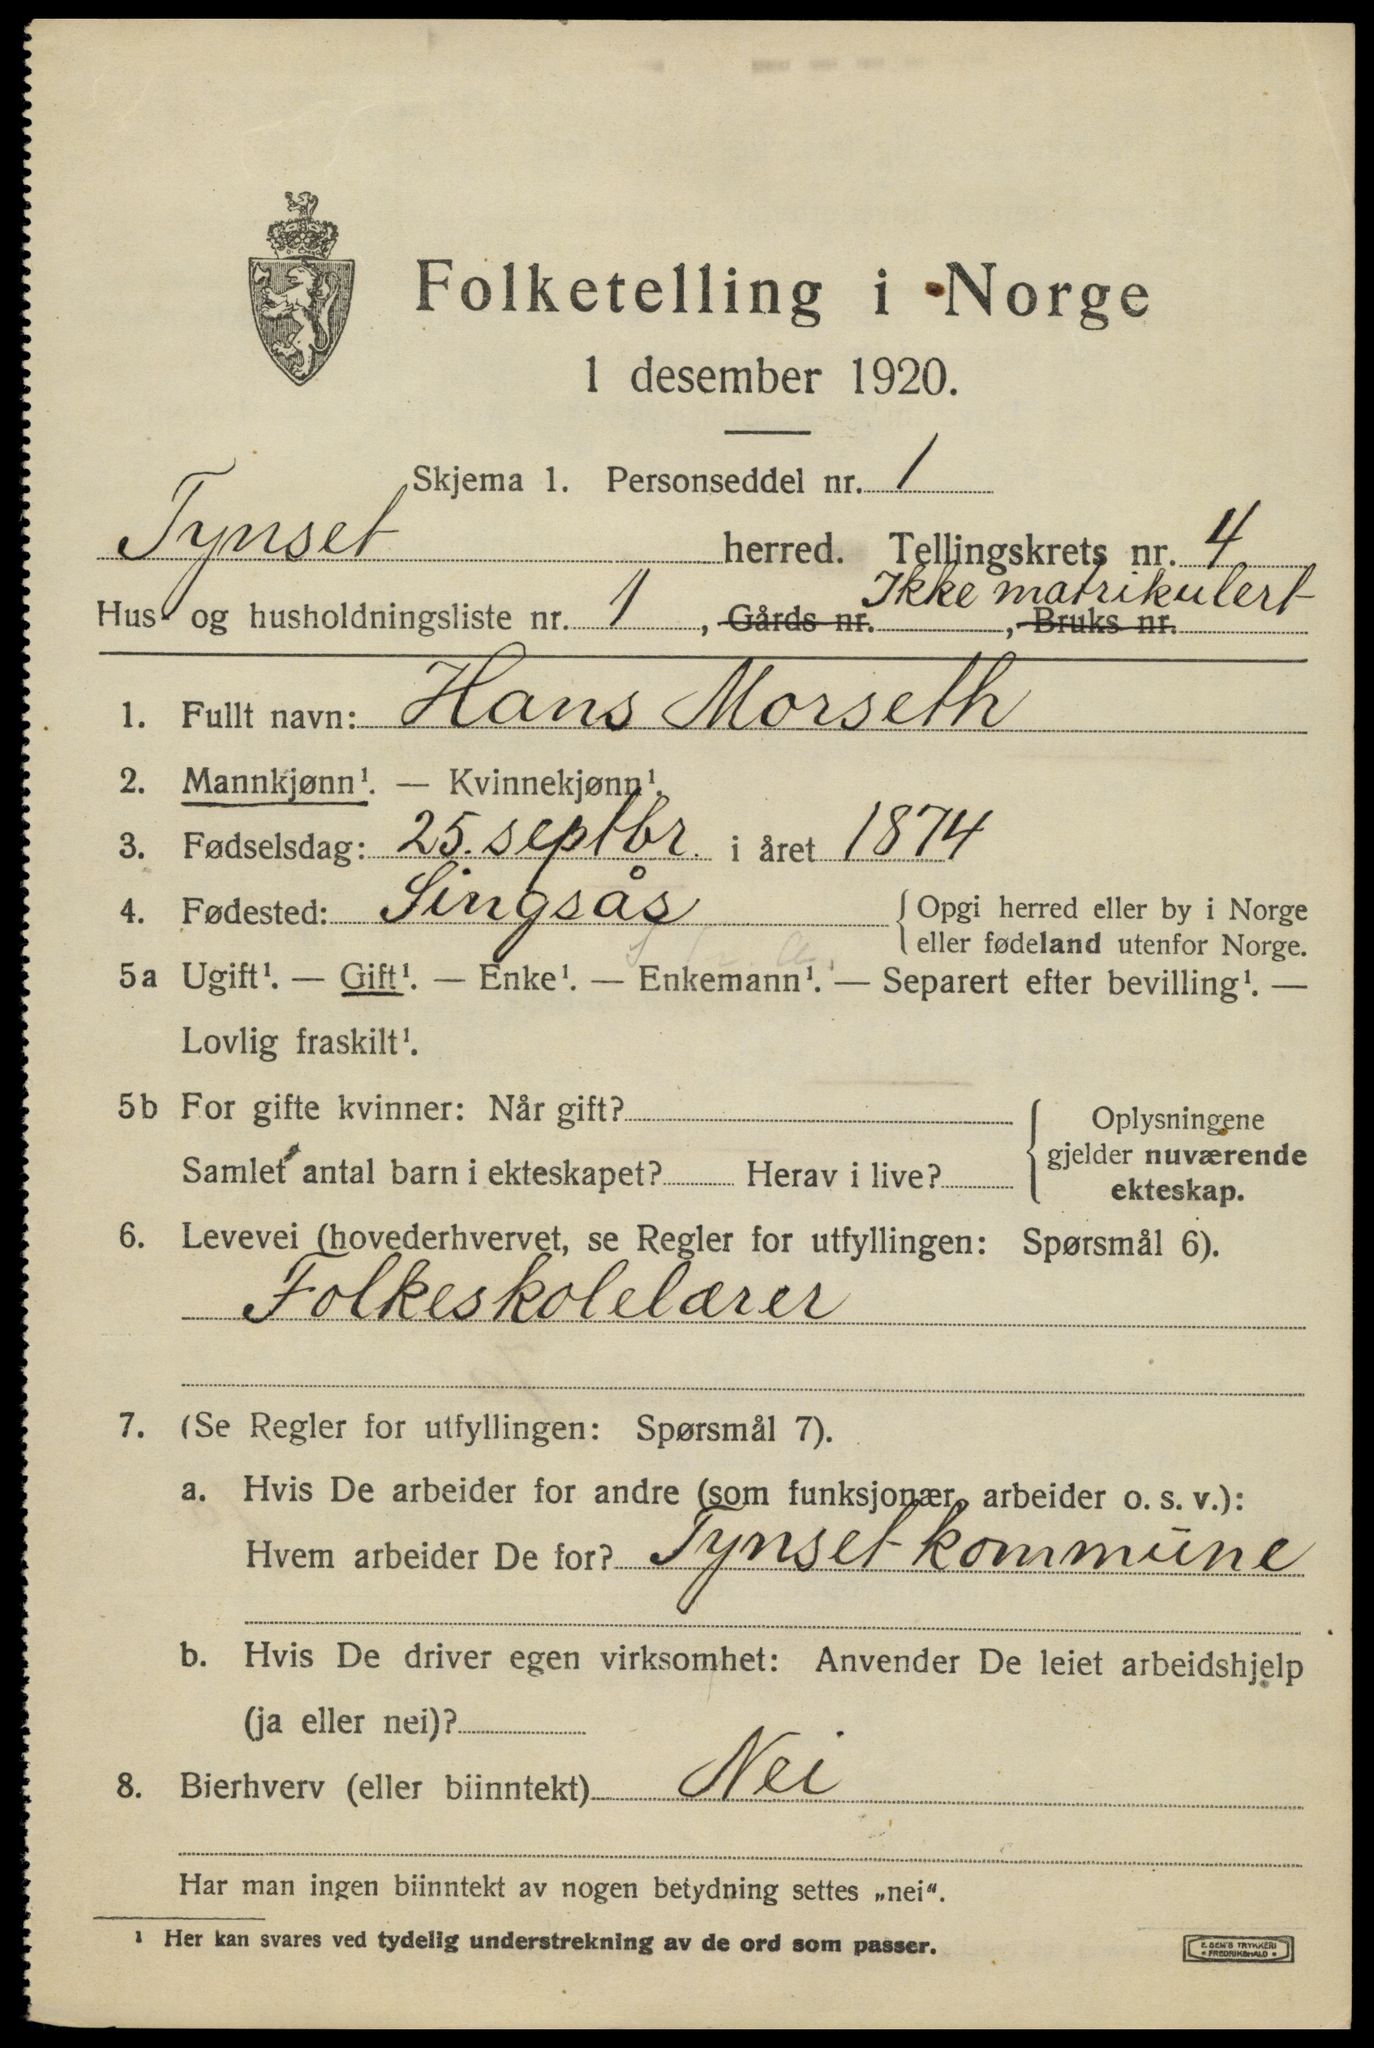 Folketelling i Norge
1 desember 1920.
Skjema 1. Personseddel nr. 1
Tynset herred. Tellingskrets nr. 4
Ikke matrikulert
Hus- og husholdningsliste nr. 1, Gårds nr. , Bruks nr.
1. Fullt navn: Hans Morseth
2. Mannkjønn¹. — Kvinnekjønn¹.
3. Fødselsdag: 25. septbr. i året 1874
4. Fødested: Singsås { Opgi herred eller by i Norge
eller fødeland utenfor Norge.
5a Ugift¹. — Gift¹. — Enke¹. — Enkemann¹. — Separert efter bevilling¹. —
Lovlig fraskilt¹.
5b For gifte kvinner: Når gift?
Samlet antal barn i ekteskapet? Herav i live?
{ Oplysningene
gjelder nuværende
ekteskap.
6. Levevei (hovederhvervet, se Regler for utfyllingen: Spørsmål 6).
Folkeskolelærer
7. (Se Regler for utfyllingen: Spørsmål 7).
a. Hvis De arbeider for andre (som funksjonær, arbeider o. s. v.):
Hvem arbeider De for? Tynset kommune
b. Hvis De driver egen virksomhet: Anvender De leiet arbeidshjelp
(ja eller nei)?
8. Bierhverv (eller biinntekt) Nei
Har man ingen biinntekt av nogen betydning settes „nei“.
¹ Her kan svares ved tydelig understrekning av de ord som passer.
E. SEM'S TRYKKERI
• FREDRIKSHALD •